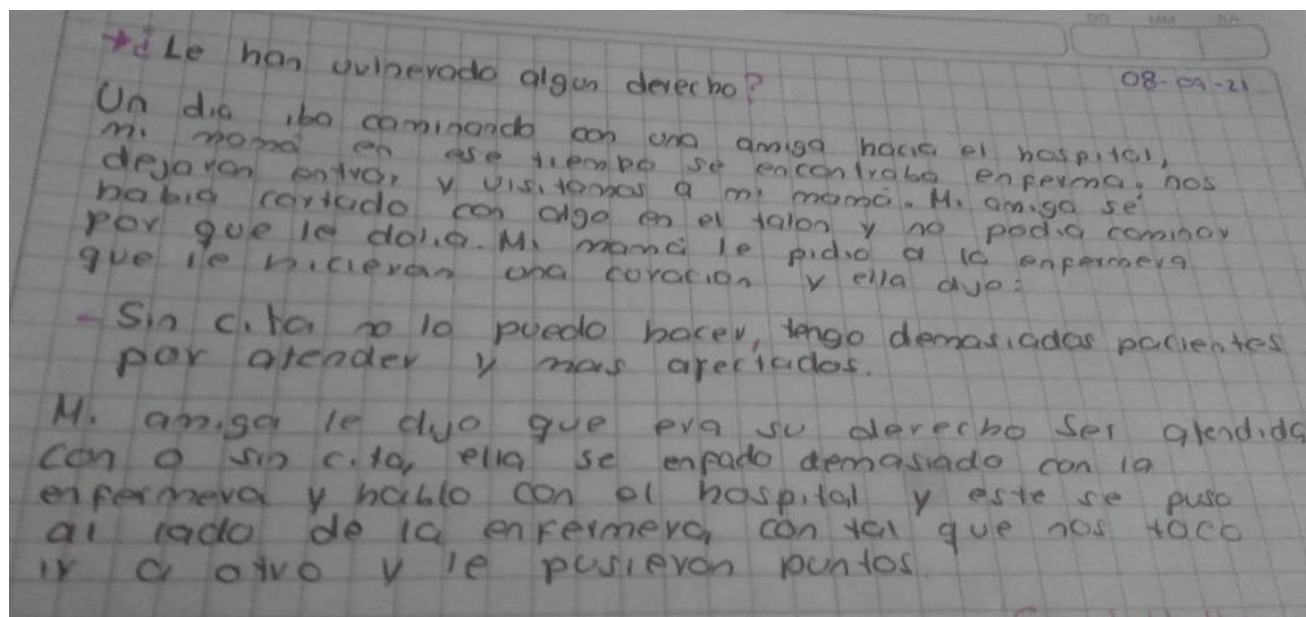 DD MM AA
→¿Le han vulnerado algun derecho?
08-09-21
Un dia iba caminando con una amiga hacia el hospital,
mi mamá en ese tiempo se encontraba enferma. nos
dejaron entrar y visitamos a mi mamá. Mi amiga se
habia cortado con algo en el talon y no podia caminar
por que le dolia. Mi mamá le pidio a la enfermera
que le hicieran una curacion y ella dijo:
- Sin cita no lo puedo hacer, tengo demasiados pacientes
por atender y mas afectados.
Mi amiga le dijo que era su derecho ser atendida
con o sin cita, ella se enfado demasiado con la
enfermera y hablo con el hospital y este se puso
al lado de la enfermera, con tal que nos toco
ir a otro y le pusieron puntos.